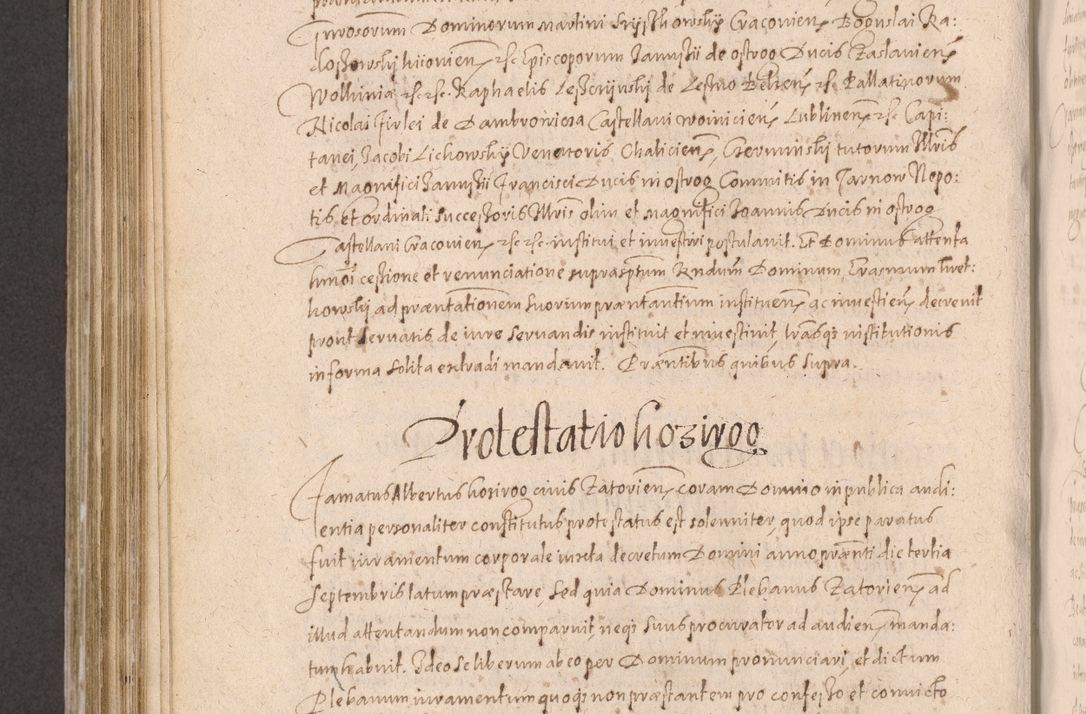 Generosorum Dominorum Martini Szyszkowsky Cracovien, Boguslai Ra:
doszowsky Kiiovien, &c. Episcoporum Janussii de ostrog Ducis Zaslavien,
Wolhinia &c. &c. Raphaelis Lesczijnsky de Lesno Belzen, &c. Pallatinorum
Nicolai Firlei de Dambrovicza Castellani woinicien, Lublinen, &c. Capi:
tanei, Jacobi Lichowsky Venatoris Chalicien, Czerminsky tutorum Illris
et Magnifici Janussii Francisci Ducis in ostrog Comitis in Tarnow Nepo:
tis et ordinali successoris Illris olim et magnifici Joannis Ducis in ostrog
Castellani Cracovien, &c. &c. institui et investiri postulavit. Et Dominus attenta
hmoi cessione et renunciatione suprascptum Rndum Dominum Erasmum Kret:
kowsky ad præntationem suorum præntantium instituen, ac investien, decrevit
prout servatis de iure servandis instituit et investivit, trasq; institutionis
in forma solita extradi mandavit. Præntibus quibus supra.
Protestatio kozirog
Famatus Albertus koziroo civis Zatorien, coram Domino in publica audi:
entia personaliter constitutus protestatus est solenniter, quod ipse paratus
fuit iuramentum corporale iuxta decretum Domini anno prænti die tertia
Septembris latum præstare, sed quia Dominus Plebanus Zatorien, ad
illud attentandum non comparuit neq; suus procurator ad audien, manda:
tum habuit. Ideo se liberum ab eo per Dominum pronunciari, et dictum
Plebanum iuramentum quoq; non præstantem pro confesso et convicto